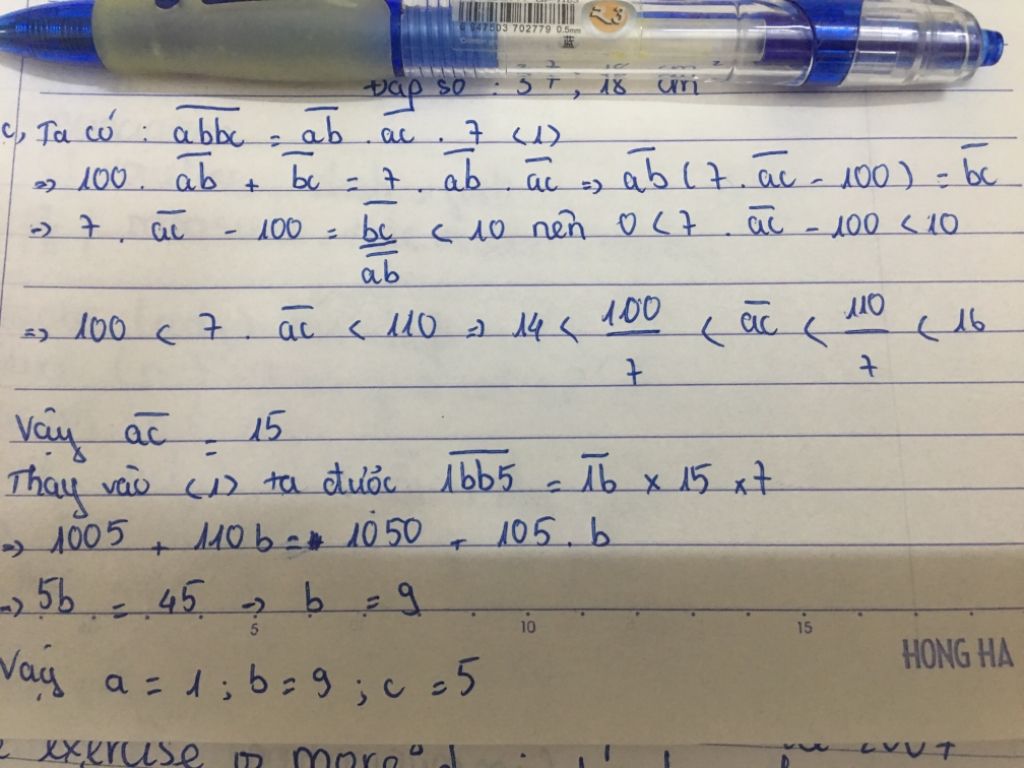 6 947503 702779 0.5mm
蓝
Đáp số :
c, Ta có : abbc = ab . ac . 7 (1)
=> 100 . ab + bc = 7 . ab . ac => ab ( 7 . ac - 100 ) = bc
=> 7 . ac - 100 = bc/ab < 10 nên 0 < 7 . ac - 100 < 10
=> 100 < 7 . ac < 110 => 14 < 100/7 < ac < 110/7 < 16
Vậy ac = 15
Thay vào (1) ta được 1bb5 = 1b x 15 x 7
=> 1005 + 110b = 1050 + 105 . b
=> 5b = 45 => b = 9
5 10 15
HONG HA
Vậy a = 1 ; b = 9 ; c = 5
exercise